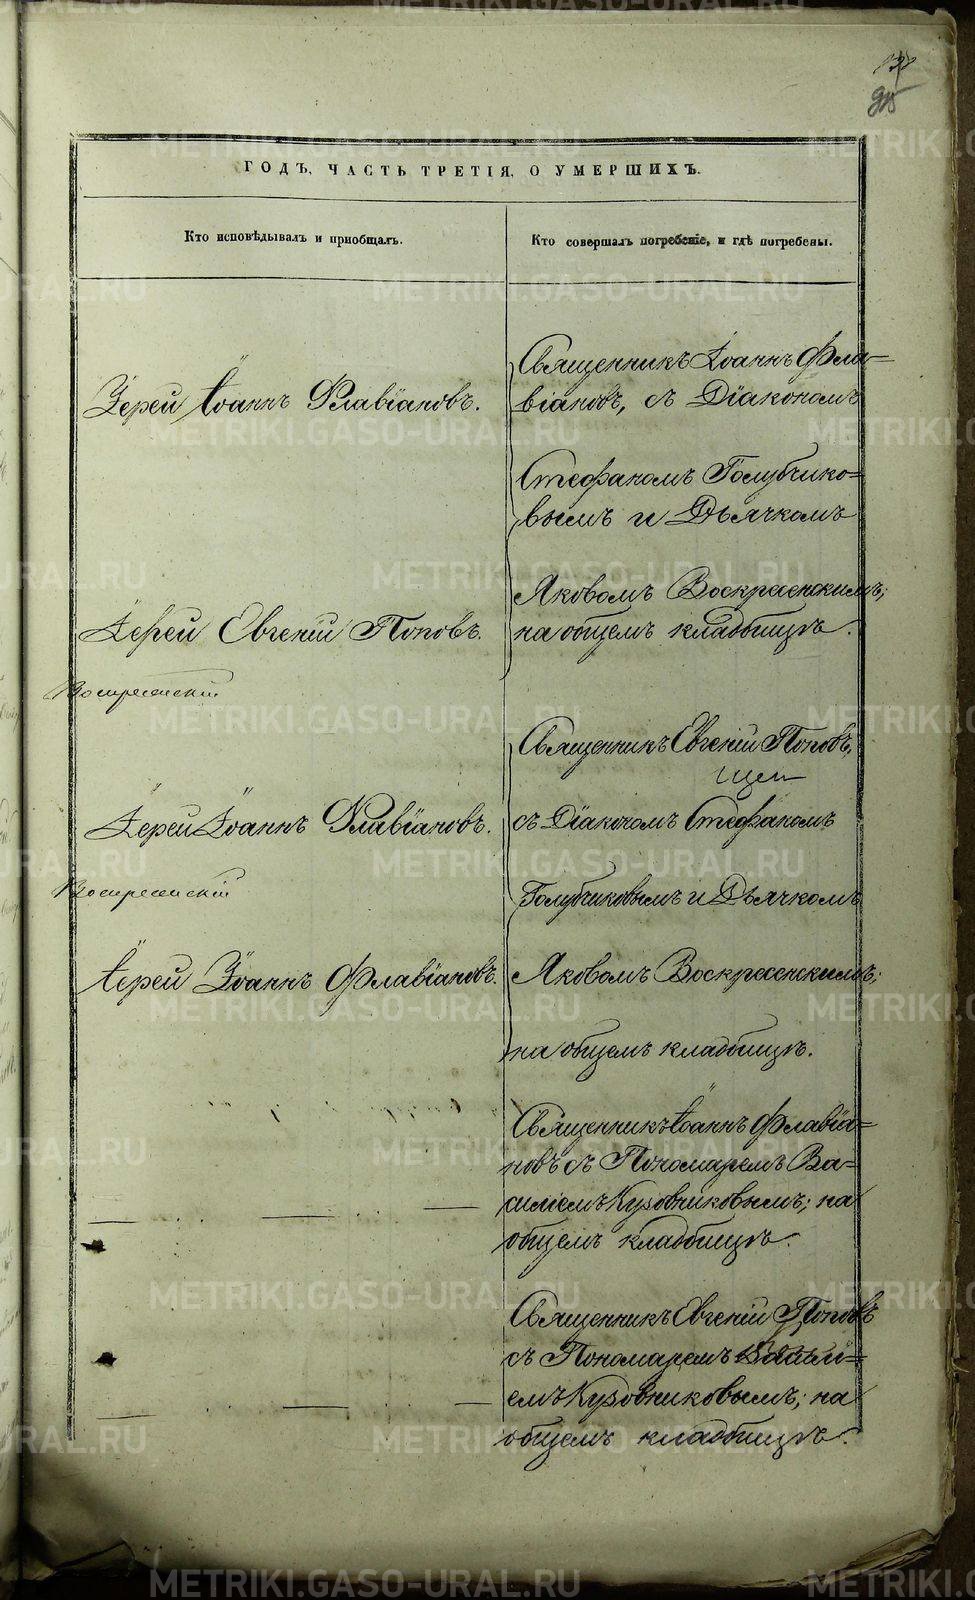 METRIKI.GASO-URAL.RU
ГОДЪ, ЧАСТЬ ТРЕТІЯ, О УМЕРШИХЪ.
Кто исповѣдывалъ и пріобщалъ.
Кто совершалъ погребеніе, и гдѣ погребены.
Іерей Іоаннъ Флавіановъ.
Священникъ Іоаннъ Фла-
віановъ, съ Діакономъ
Стефаномъ Голубчико-
вымъ и Дьячкомъ
Яковомъ Воскресенскимъ;
на общемъ кладбищѣ.
Іерей Евгеній Поповъ.
Воскресенскій
Священникъ Евгеній Поповъ,
съ Діакономъ Стефаномъ
Іерей Іоаннъ Флавіановъ.
Воскресенскій
Голубчиковымъ и Дьячкомъ
Іерей Іоаннъ Флавіановъ.
Яковомъ Воскресенскимъ;
на общемъ кладбищѣ.
Священникъ Іоаннъ Флавіа-
новъ съ Пономаремъ Ва-
силіемъ Кузовниковымъ; на
общемъ кладбищѣ.
Священникъ Евгеній Поповъ
съ Пономаремъ Васили-
емъ Кузовниковымъ; на
общемъ кладбищѣ.